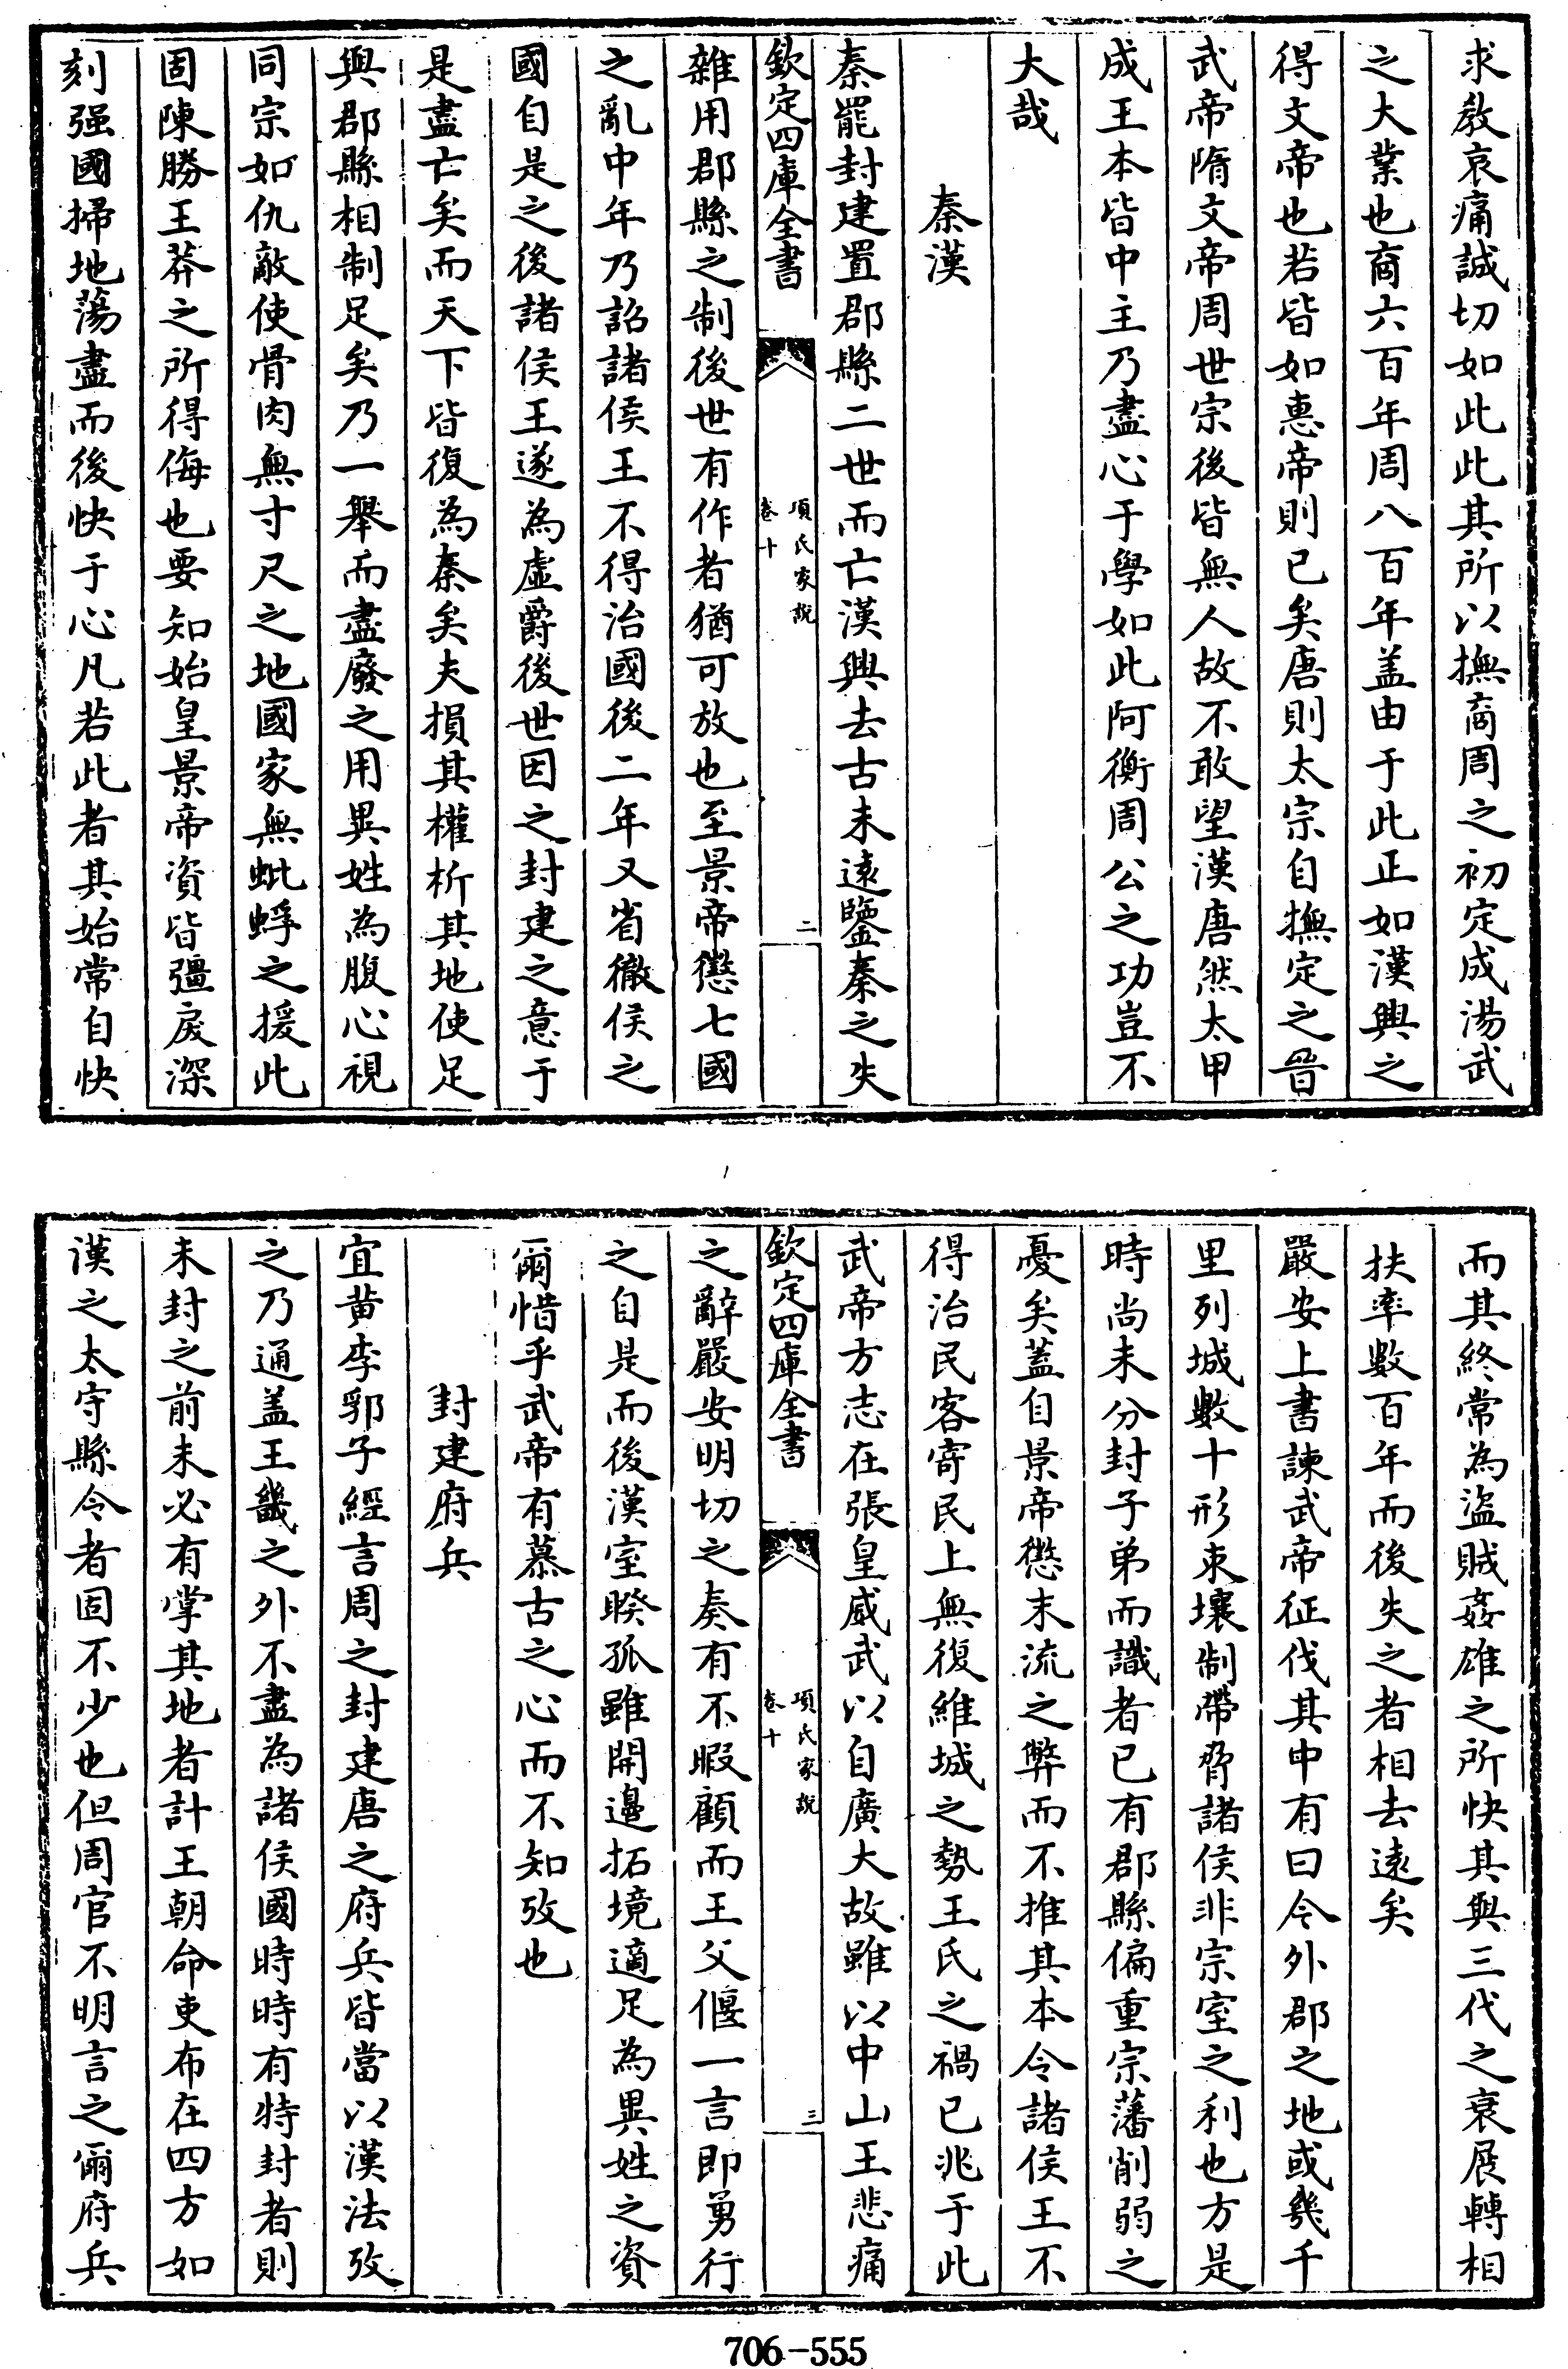 求教哀痛誠切如此此其所以撫商周之初定成湯武
之大業也商六百年周八百年盖由于此正如漢興之
得文帝也若皆如惠帝則已矣唐則太宗自撫定之晉
武帝隋文帝周世宗後皆無人故不敢望漢唐然太甲
成王本皆中主乃盡心于學如此阿衡周公之功豈不
大哉
秦漢
秦罷封建置郡縣二世而亡漢興去古未遠鑒秦之失
欽定四庫全書
項氏家說
卷十
二
雜用郡縣之制後世有作者猶可放也至景帝懲七國
之亂中年乃詔諸侯王不得治國後二年又省徹侯之
國自是之後諸侯王遂為虛爵後世因之封建之意于
是盡亡矣而天下皆復為秦矣夫損其權析其地使足
與郡縣相制足矣乃一舉而盡廢之用異姓為腹心視
同宗如仇敵使骨肉無寸尺之地國家無蚍蜉之援此
固陳勝王莽之所得侮也要知始皇景帝資皆彊戾深
刻强國掃地蕩盡而後快于心凡若此者其始常自快
而其終常為盜賊姦雄之所快其與三代之衰展轉相
扶率數百年而後失之者相去遠矣
嚴安上書諫武帝征伐其中有曰今外郡之地或幾千
里列城數十形束壤制帶脅諸侯非宗室之利也方是
時尚未分封子弟而識者已有郡縣偏重宗藩削弱之
憂矣蓋自景帝懲末流之弊而不推其本令諸侯王不
得治民客寄民上無復維城之勢王氏之禍已兆于此
武帝方志在張皇威武以自廣大故雖以中山王悲痛
欽定四庫全書
項氏家說
卷十
三
之辭嚴安明切之奏有不暇顧而王父偃一言即勇行
之自是而後漢室睽孤雖開邊拓境適足為異姓之資
爾惜乎武帝有慕古之心而不知攷也
封建府兵
宜黄李郛子經言周之封建唐之府兵皆當以漢法攷
之乃通盖王畿之外不盡為諸侯國時時有特封者則
未封之前未必有掌其地者計王朝命吏布在四方如
漢之太守縣令者固不少也但周官不明言之爾府兵
706-555